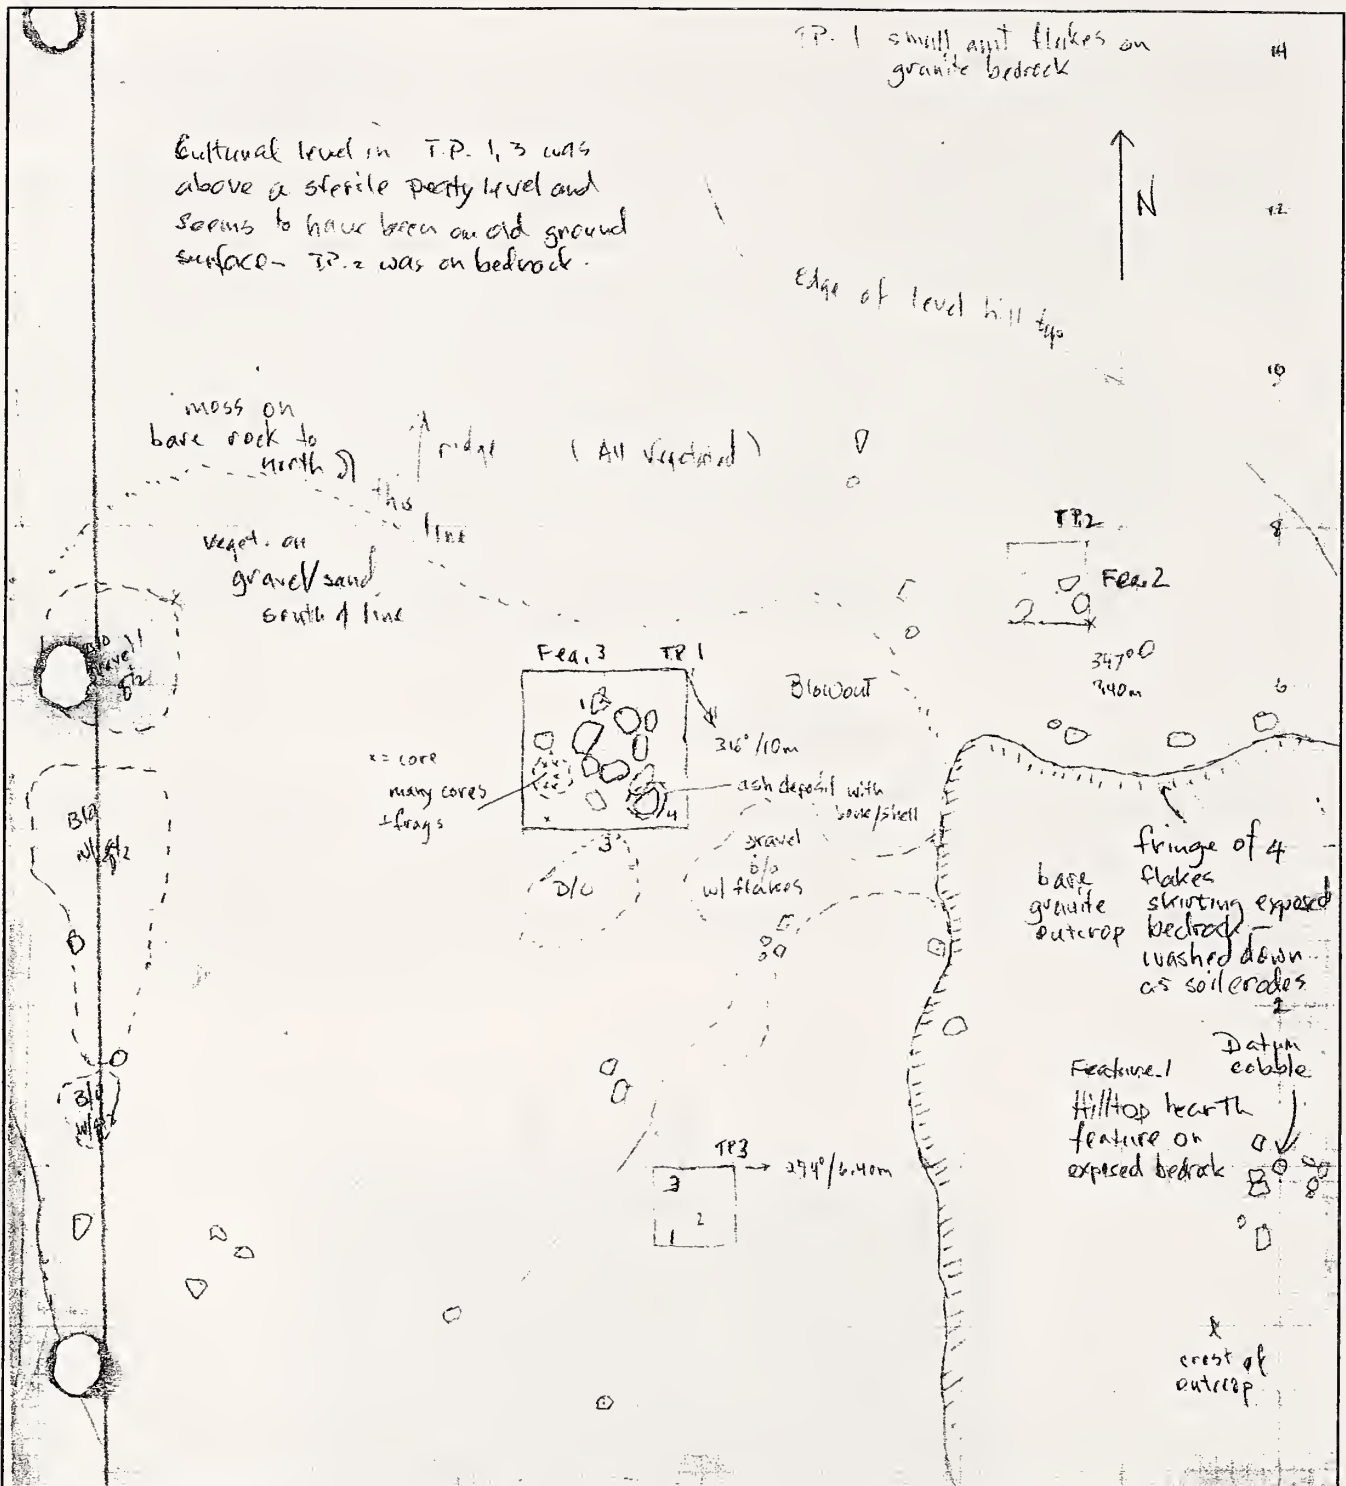 T.P. 1 small amt flakes on
granite bedrock
14
Cultural level in T.P. 1, 3 was
above a sterile peaty level and
seems to have been an old ground
surface - T.P. 2 was on bedrock.
N
12
Edge of level hill top
10
moss on
bare rock to
north of
this
line
ridge
(All Vegetated)
veget. on
gravel/sand
south of line
T.P.2
8
Fea. 2
2
347°
3.40m
6
Fea. 3
T.P. 1
Blowout
316°/10m
1
x = core
many cores
+ frags
ash deposit with
bone/shell
4
3
B/O
gravel
B/O
w/ flakes
B/O
gravel
B/O
B/O
fringe of
flakes
skirting exposed
bedrock -
washed down
as soil erodes
4
bare
granite
outcrop
2
Datum
cobble
Feature 1
Hilltop hearth
feature on
exposed bedrock
TP3
274°/6.40m
3
2
1
x
crest of
outcrop